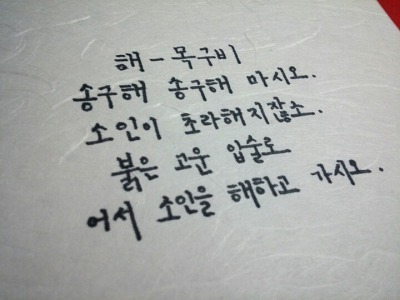 해 - 목구비
송구해 송구해 마시오.
소인이 초라해지잖소.
붉은 고운 입술로
어서 소인을 해하고 가시오.